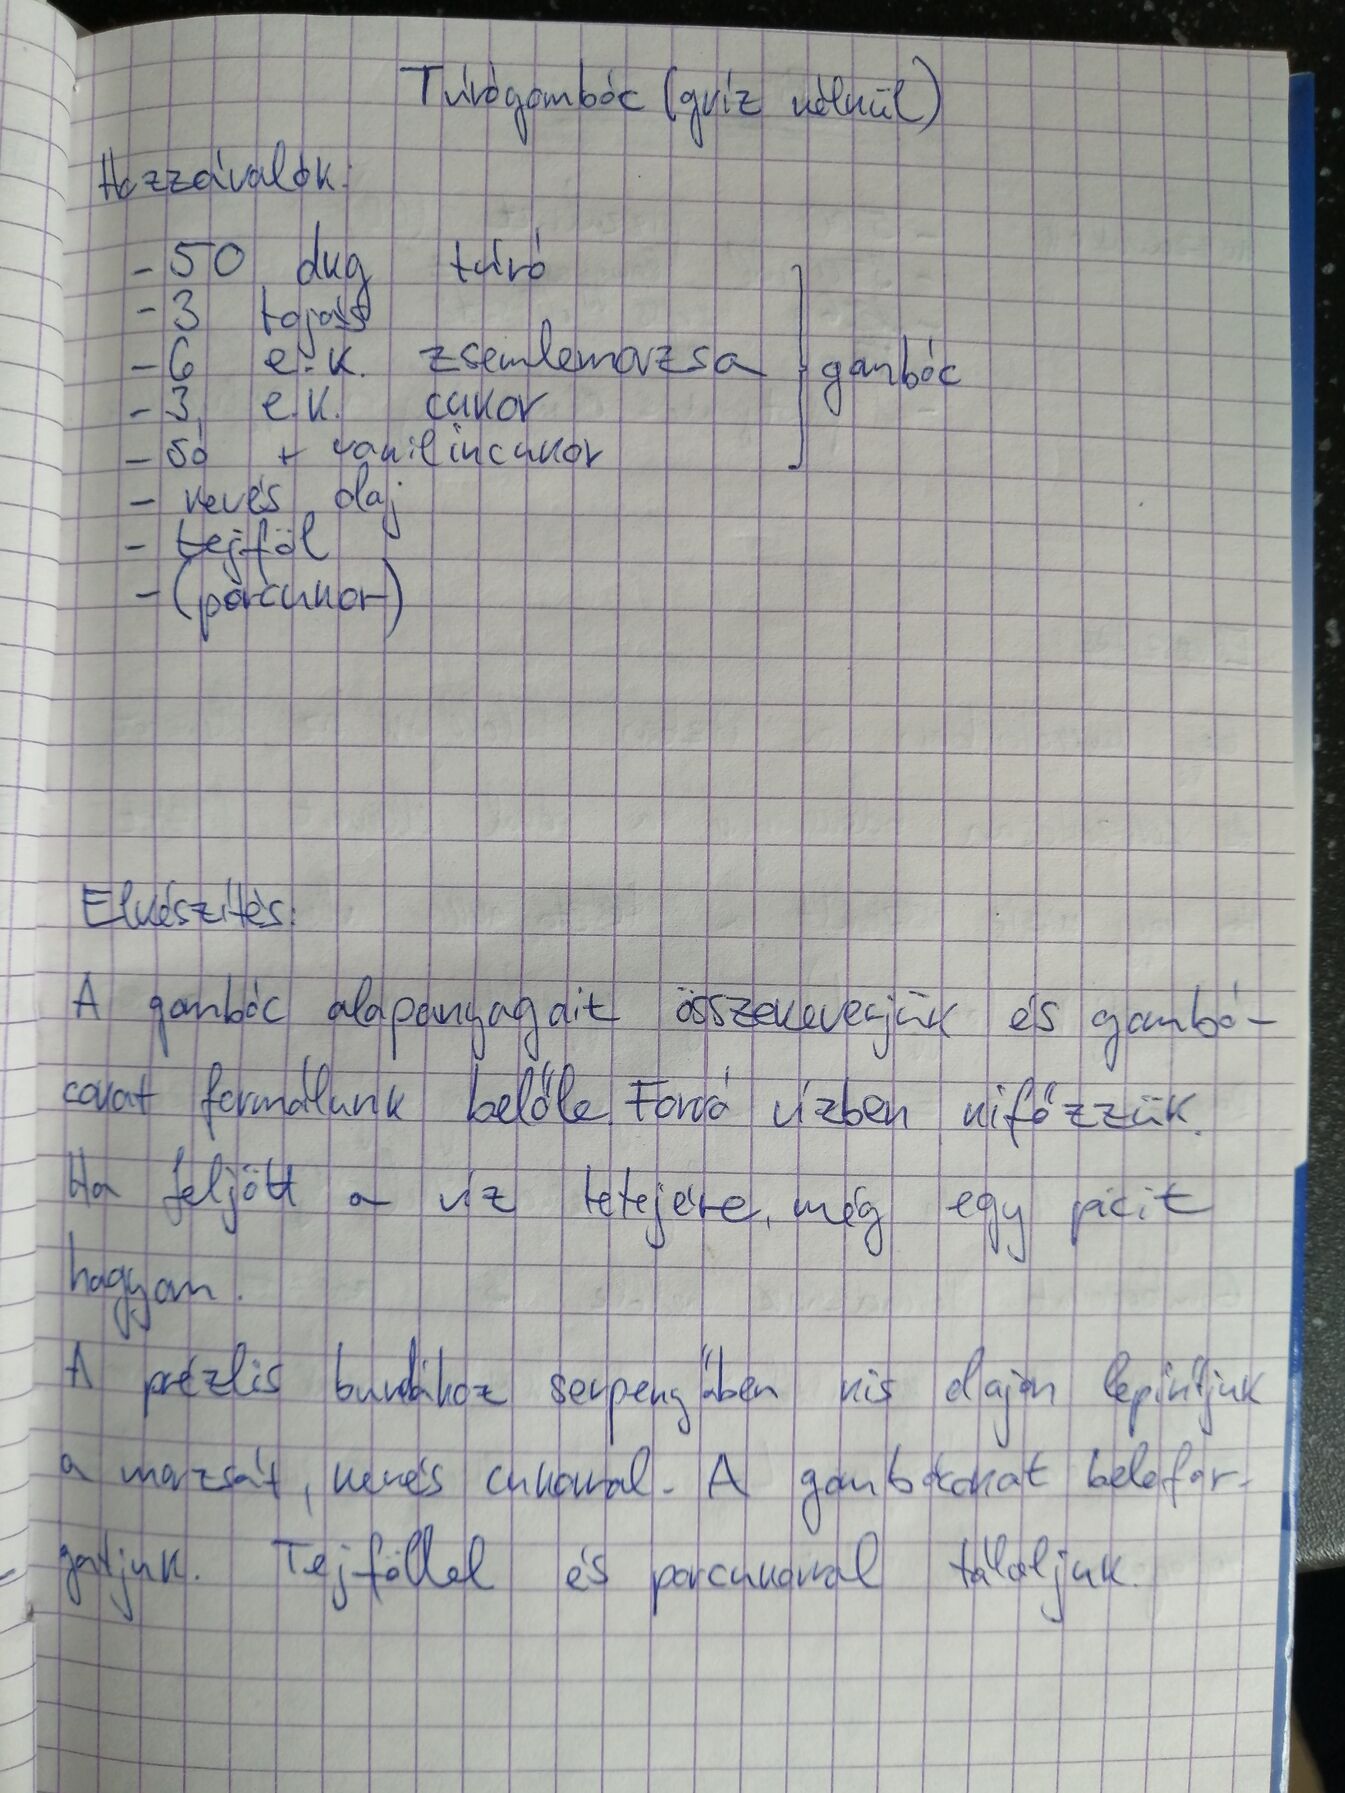 Túrógombóc (gríz nélkül)
Hozzávalók:
- 50 dkg túró
- 3 tojás
- 6 e.k. zsemlemorzsa
- 3 e.k. cukor
- só + vanilincukor
gombóc
- kevés olaj
- tejföl
- (porcukor)
Elkészítés:
A gombóc alapanyagait összekeverjük és gombó-
cokat formálunk belőle. Forró vízben kifőzzük.
Ha feljött a víz tetejére, még egy picit
hagyom.
A prézlis bundához serpenyőben kis olajon lepirítjuk
a morzsát, kevés cukorral. A gombócokat belefor-
gatjuk. Tejföllel és porcukorral tálaljuk.